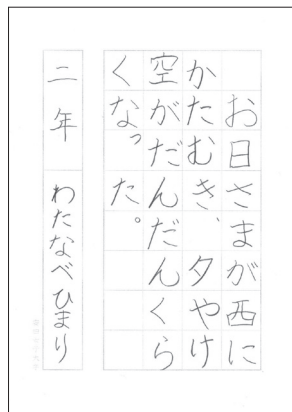 お日さまが西に
かたむき、夕やけ
空がだんだんくら
くなった。
二年 わたなべひまり